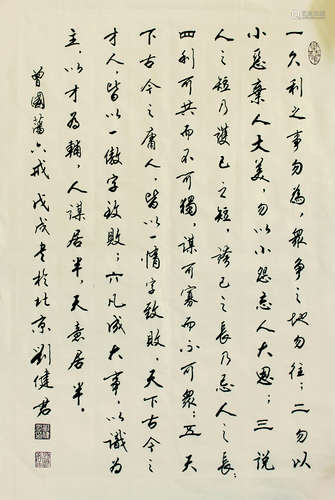 一久利之事勿为，众争之地勿往；二勿以
小恶弃人大美，勿以小怨忘人大恩；三说
人之短乃护己之短，誇己之长乃忌人之长；
四利可共而不可独，谋可寡而不可众；五天
下古今之庸人，皆以一惰字致败，天下古今之
才人，皆以一傲字致败；六凡成大事，以识为
主，以才为辅，人谋居半，天意居半。
曾国藩六戒戊戌冬於北京刘健君